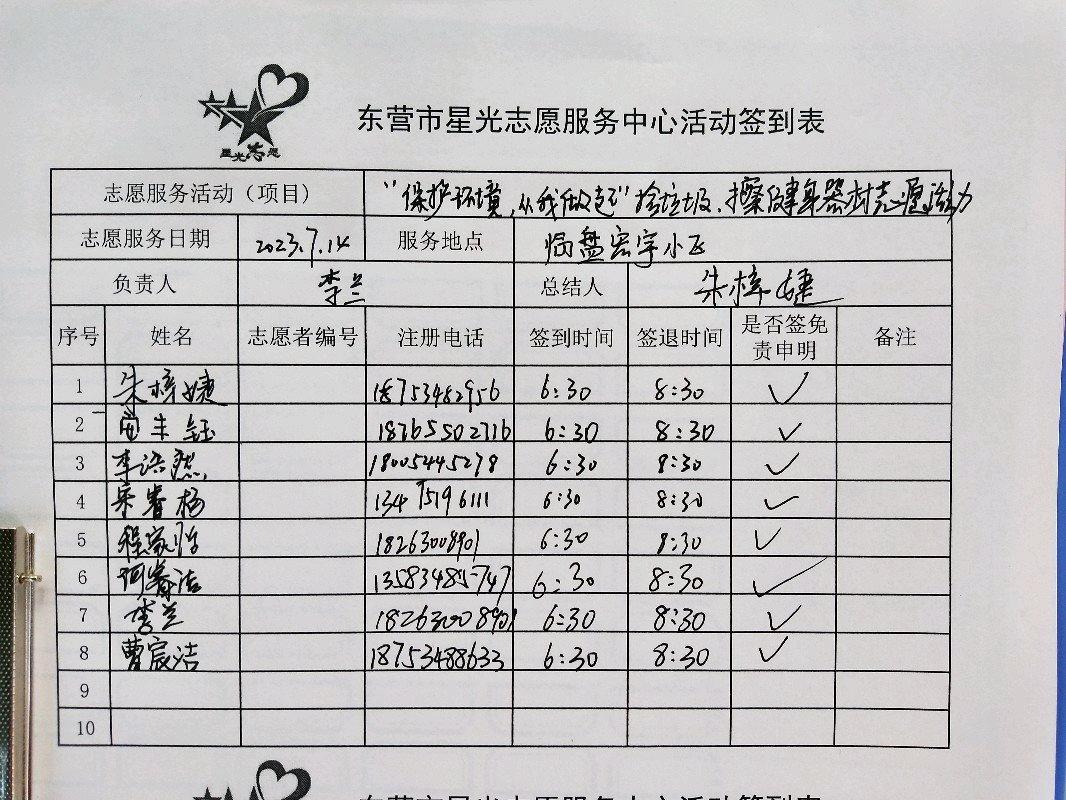 星光志愿
东营市星光志愿服务中心活动签到表
志愿服务活动（项目） “保护环境，从我做起”捡垃圾、擦健身器材志愿活动
志愿服务日期 2023.7.14 服务地点 临盘宏宇小区
负责人 李兰 总结人 朱梓婕
序号 姓名 志愿者编号 注册电话 签到时间 签退时间 是否签免责申明 备注
1 朱梓婕 18753482956 6:30 8:30 ✓
2 钰 18765502716 6:30 8:30 ✓
3 李浩然 18005445278 6:30 8:30 ✓
4 宋睿杨 13475196111 6:30 8:30 ✓
5 程家怡 18263008901 6:30 8:30 ✓
6 睿洁 13583485747 6:30 8:30 ✓
7 李兰 18263008901 6:30 8:30 ✓
8 曹宸洁 18753488633 6:30 8:30 ✓
9
10
东营市星光志愿服务中心活动签到表